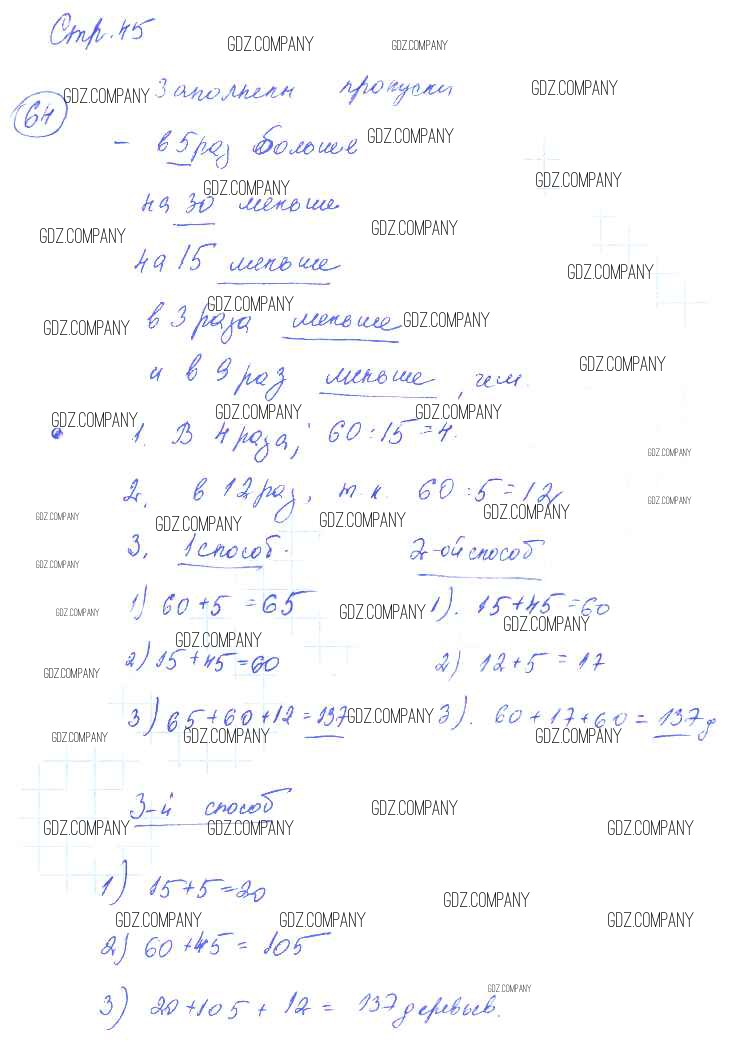 Стр. 45
GDZ.COMPANY GDZ.COMPANY
64 GDZ.COMPANY Заполнены пропуски GDZ.COMPANY
– в 5 раз больше GDZ.COMPANY
GDZ.COMPANY GDZ.COMPANY
на 30 меньше
GDZ.COMPANY GDZ.COMPANY
на 15 меньше GDZ.COMPANY
GDZ.COMPANY
GDZ.COMPANY в 3 раза меньше GDZ.COMPANY
GDZ.COMPANY
и в 9 раз меньше, чем.
GDZ.COMPANY GDZ.COMPANY GDZ.COMPANY
1. В 4 раза; 60 : 15 = 4.
GDZ.COMPANY
2. в 12 раз, т. к. 60 : 5 = 12 GDZ.COMPANY
GDZ.COMPANY GDZ.COMPANY GDZ.COMPANY GDZ.COMPANY
3. 1 способ. 2-ой способ
GDZ.COMPANY
1) 60 + 5 = 65 GDZ.COMPANY 1). 15 + 45 = 60
GDZ.COMPANY GDZ.COMPANY
GDZ.COMPANY
2) 15 + 45 = 60 2) 12 + 5 = 17
GDZ.COMPANY
3) 65 + 60 + 12 = 137 GDZ.COMPANY 3). 60 + 17 + 60 = 137 д
GDZ.COMPANY GDZ.COMPANY GDZ.COMPANY
3-й способ GDZ.COMPANY
GDZ.COMPANY GDZ.COMPANY GDZ.COMPANY
1) 15 + 5 = 20
GDZ.COMPANY
GDZ.COMPANY GDZ.COMPANY GDZ.COMPANY
2) 60 + 45 = 105
GDZ.COMPANY
3) 20 + 105 + 12 = 137 деревьев.